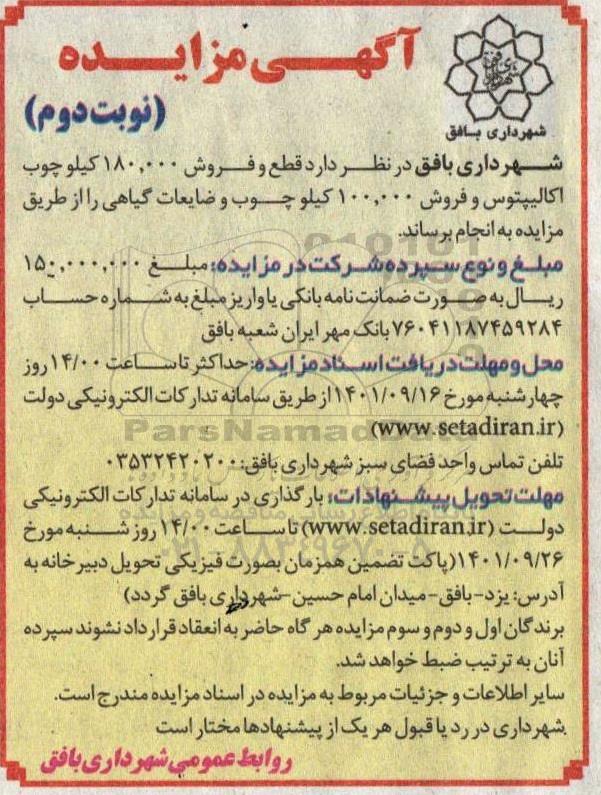 آگهی مزایده
شهرداری بافق
(نوبت دوم)
شهرداری بافق در نظر دارد قطع و فروش ۱۸۰,۰۰۰ کیلو چوب
اکالیپتوس و فروش ۱۰۰,۰۰۰ کیلو چوب و ضایعات گیاهی را از طریق
مزایده به انجام برساند.
مبلغ و نوع سپرده شرکت در مزایده: مبلغ ۱۵۰,۰۰۰,۰۰۰
ریال به صورت ضمانت نامه بانکی یا واریز مبلغ به شماره حساب
۷۶۰۴۱۱۸۷۴۵۹۲۸۴ بانک مهر ایران شعبه بافق
محل و مهلت دریافت اسناد مزایده: حداکثر تا ساعت ۱۴/۰۰ روز
چهارشنبه مورخ ۱۴۰۱/۰۹/۱۶ از طریق سامانه تدارکات الکترونیکی دولت
(www.setadiran.ir)
ParsNamadData
تلفن تماس واحد فضای سبز شهرداری بافق: ۰۳۵۳۲۴۲۰۲۰۰
مهلت تحویل پیشنهادات: بارگذاری در سامانه تدارکات الکترونیکی
دولت (www.setadiran.ir) تا ساعت ۱۴/۰۰ روز شنبه مورخ
۱۴۰۱/۰۹/۲۶ (پاکت تضمین همزمان بصورت فیزیکی تحویل دبیرخانه به
آدرس: یزد-بافق-میدان امام حسین-شهرداری بافق گردد)
برندگان اول و دوم و سوم مزایده هر گاه حاضر به انعقاد قرارداد نشوند سپرده
آنان به ترتیب ضبط خواهد شد.
سایر اطلاعات و جزئیات مربوط به مزایده در اسناد مزایده مندرج است.
شهرداری در رد یا قبول هر یک از پیشنهادها مختار است
روابط عمومی شهرداری بافق